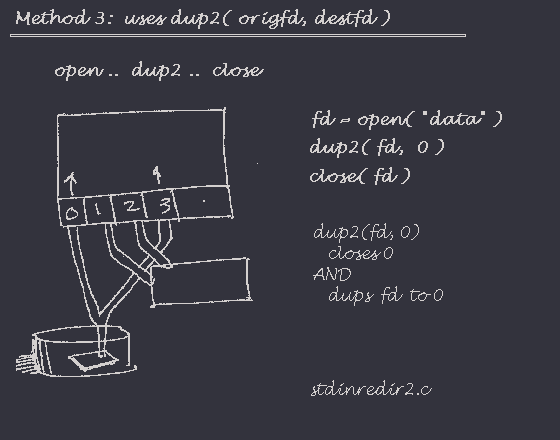 Method 3: uses dup2( origfd, destfd )
open .. dup2 .. close
fd = open( "data" )
dup2( fd, 0 )
close( fd )
0 1 2 3 .
dup2(fd, 0)
closes 0
AND
dups fd to 0
stdinredir2.c